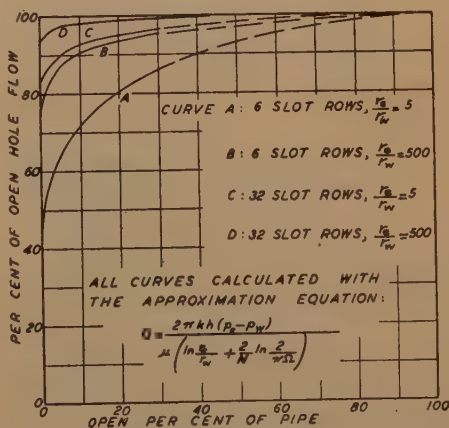 PER CENT OF OPEN HOLE FLOW
100
80
60
40
20
0
D
C
B
A
CURVE A: 6 SLOT ROWS, re/rw = 5
B: 6 SLOT ROWS, re/rw = 500
C: 32 SLOT ROWS, re/rw = 5
D: 32 SLOT ROWS, re/rw = 500
ALL CURVES CALCULATED WITH
THE APPROXIMATION EQUATION:
Q = 2πkh(pe-pw) / μ(ln re/rw + 2/N ln 2/πΩ)
0 20 40 60 80 100
OPEN PER CENT OF PIPE